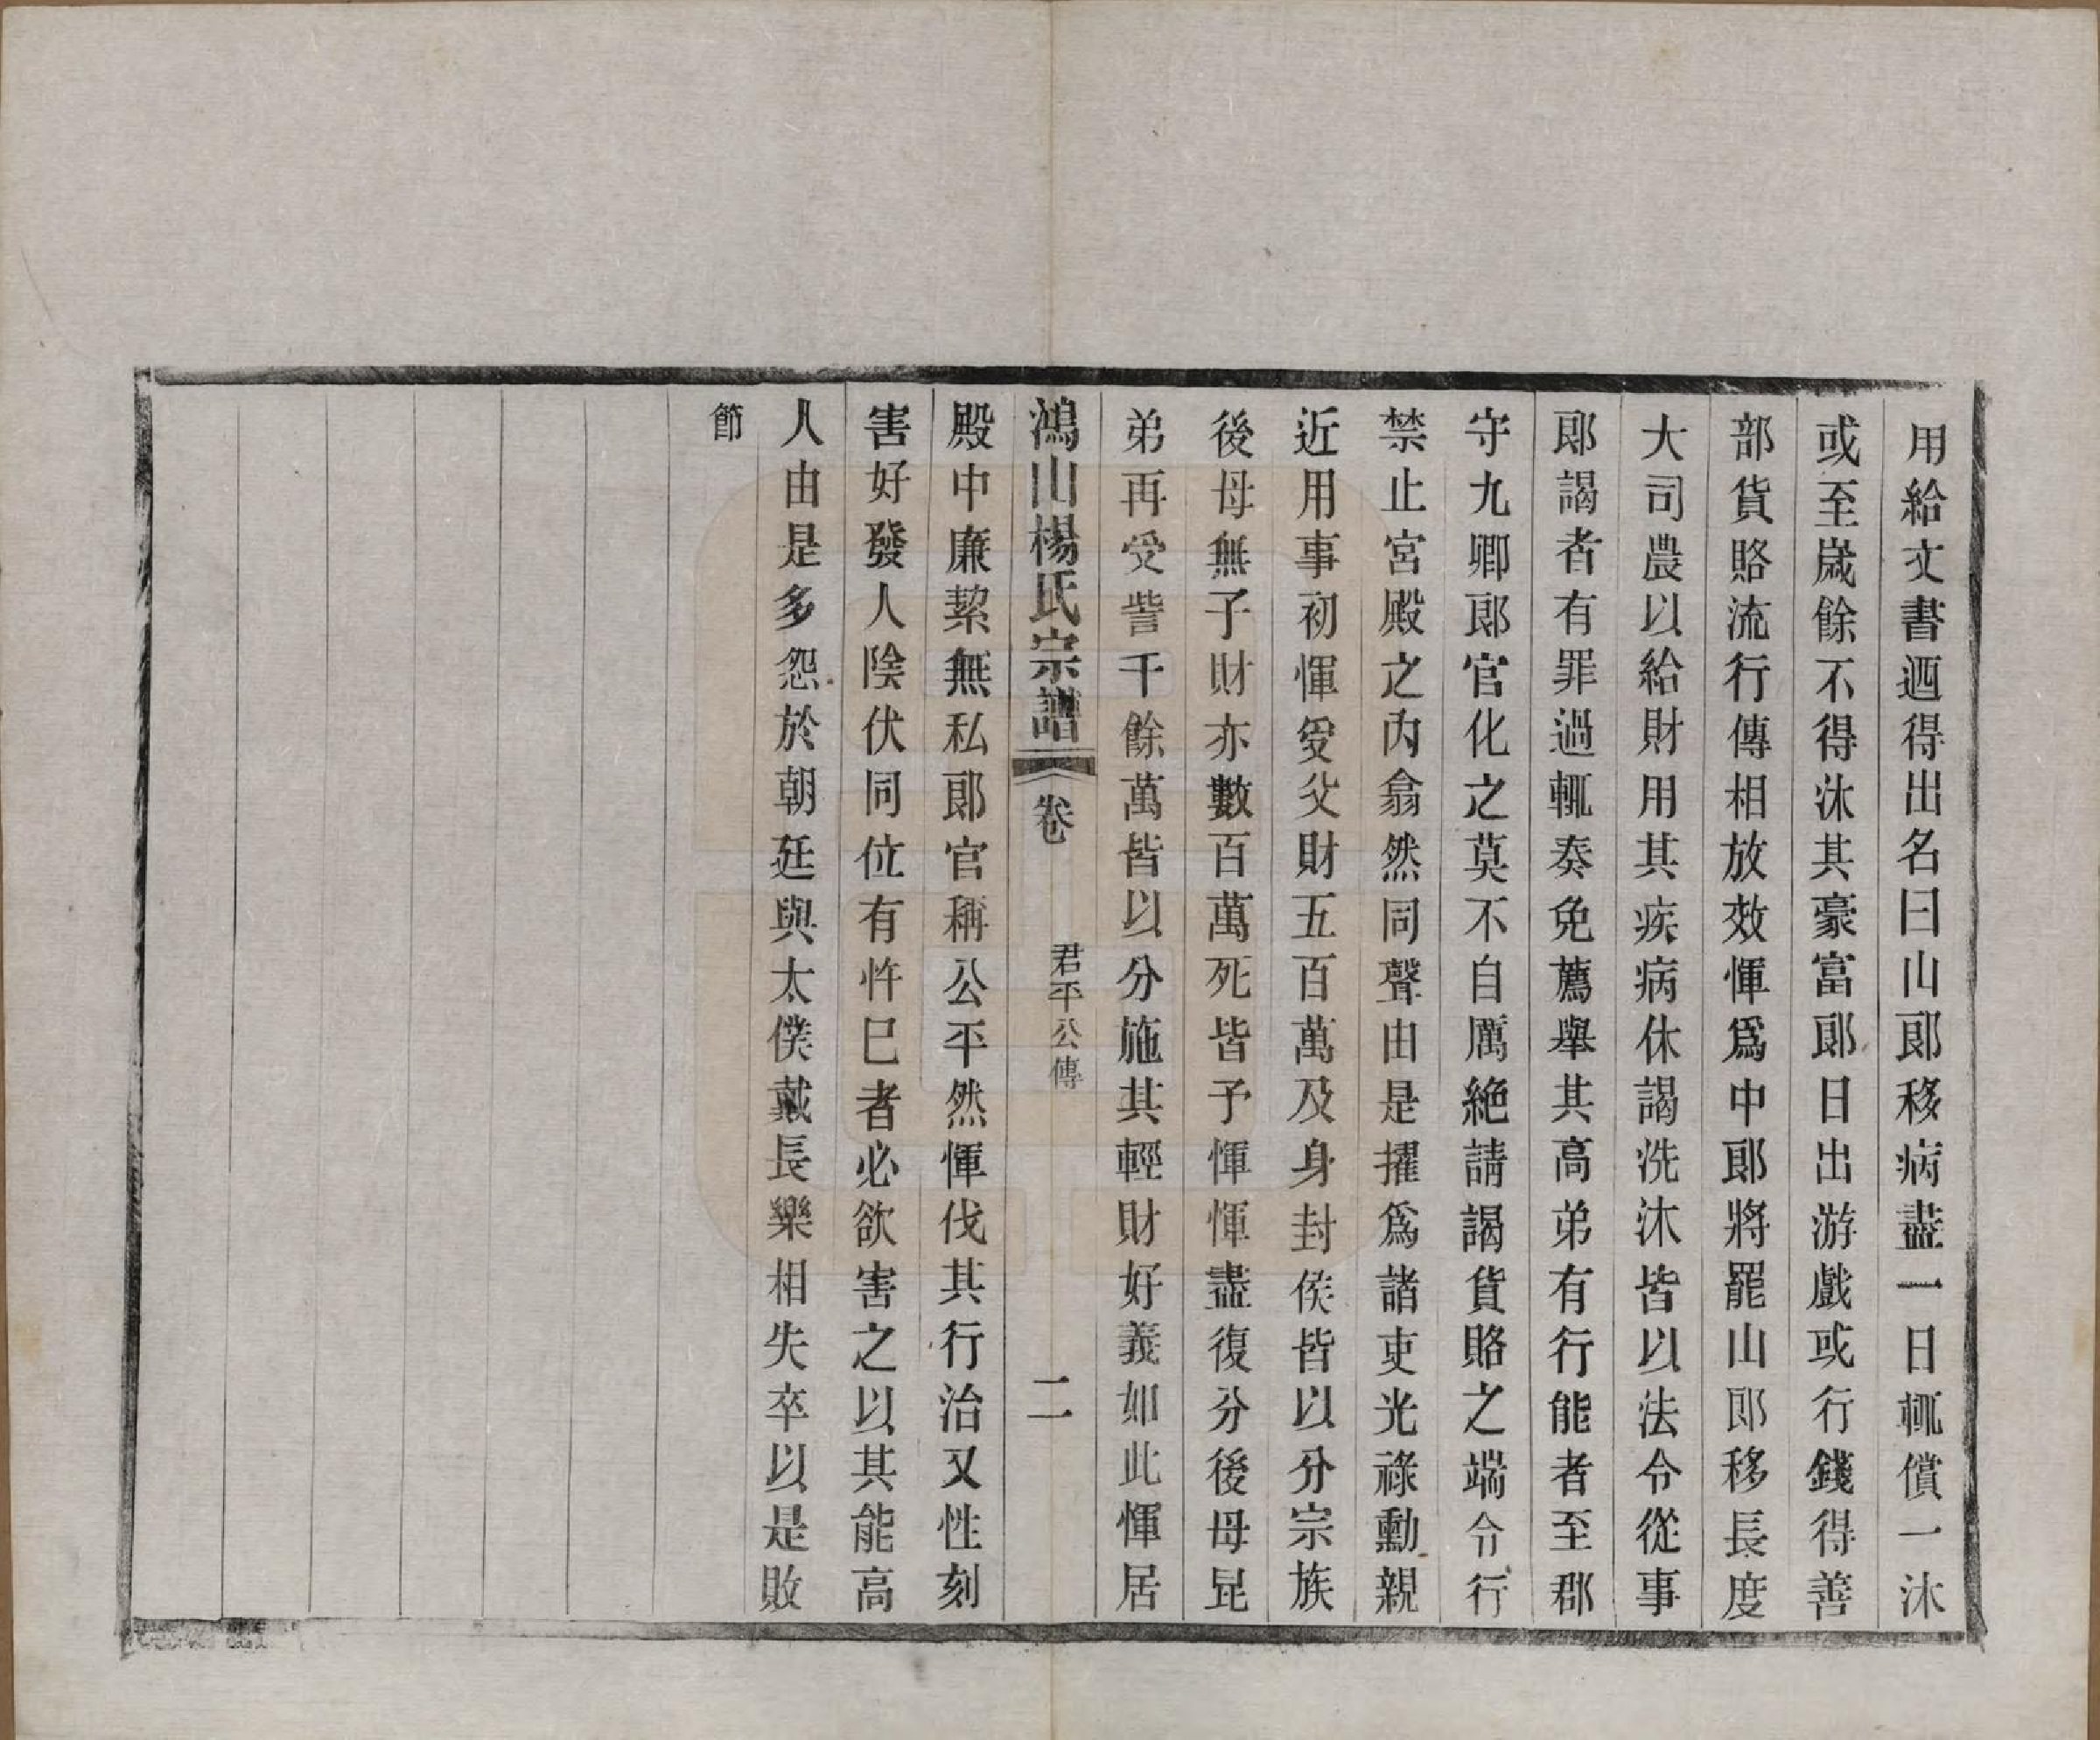 用給文書迺得出名曰山郞移病盡一日輒償一沐
或至歲餘不得沐其豪富郞日出游戲或行錢得善
部貨賂流行傳相放效惲爲中郞將罷山郞移長度
大司農以給財用其疾病休謁洗沐皆以法令從事
郞謁者有罪過輒奏免薦舉其高弟有行能者至郡
守九卿郞官化之莫不自厲絕請謁貨賂之端令行
禁止宮殿之內翕然同聲由是擢爲諸吏光祿勳親
近用事初惲受父財五百萬及身封侯皆以分宗族
後母無子財亦數百萬死皆予惲惲盡復分後母昆
弟再受訾千餘萬皆以分施其輕財好義如此惲居
鴻山楊氏宗譜 卷 君平公傳 二
殿中廉絜無私郞官稱公平然惲伐其行治又性刻
害好發人陰伏同位有忤巳者必欲害之以其能高
人由是多怨於朝廷與太僕戴長樂相失卒以是敗
節